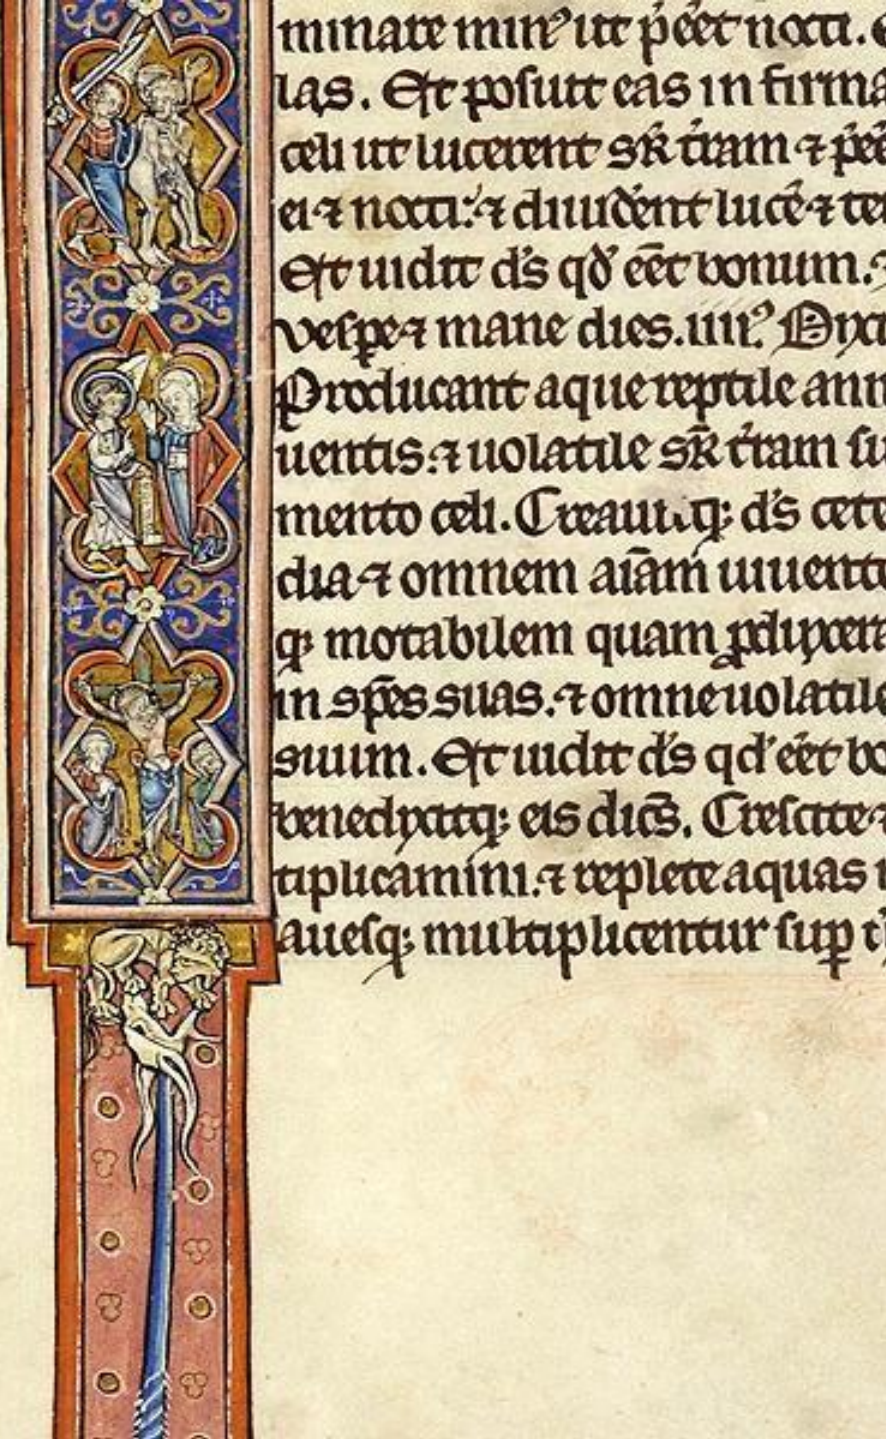 minare min⁹ ut p̄eet nocti.
las. Et posuit eas in firma
celi ut lucerent sr̄ t̄ram ⁊ p̄ee
ei ⁊ nocti: ⁊ diuiderent lucē ⁊ te
Et uidit d̄s qd̄ eēt bonum. ⁊
vespe ⁊ mane dies .iiii⁹. Dixi
Producant aque reptile anim
uentis. ⁊ uolatile sr̄ t̄ram su
mento celi. Creauitq; d̄s cete
dia ⁊ omnem aīam uiuente
q; motabilem quam ꝓduxera
in sp̄es suas. ⁊ omne uolatile
suum. Et uidit d̄s qd̄ eēt bo
benedixitq; eis dicē̄s. Crescite ⁊
tiplicamini. ⁊ replete aquas
auesq; multiplicentur suꝑ t̄